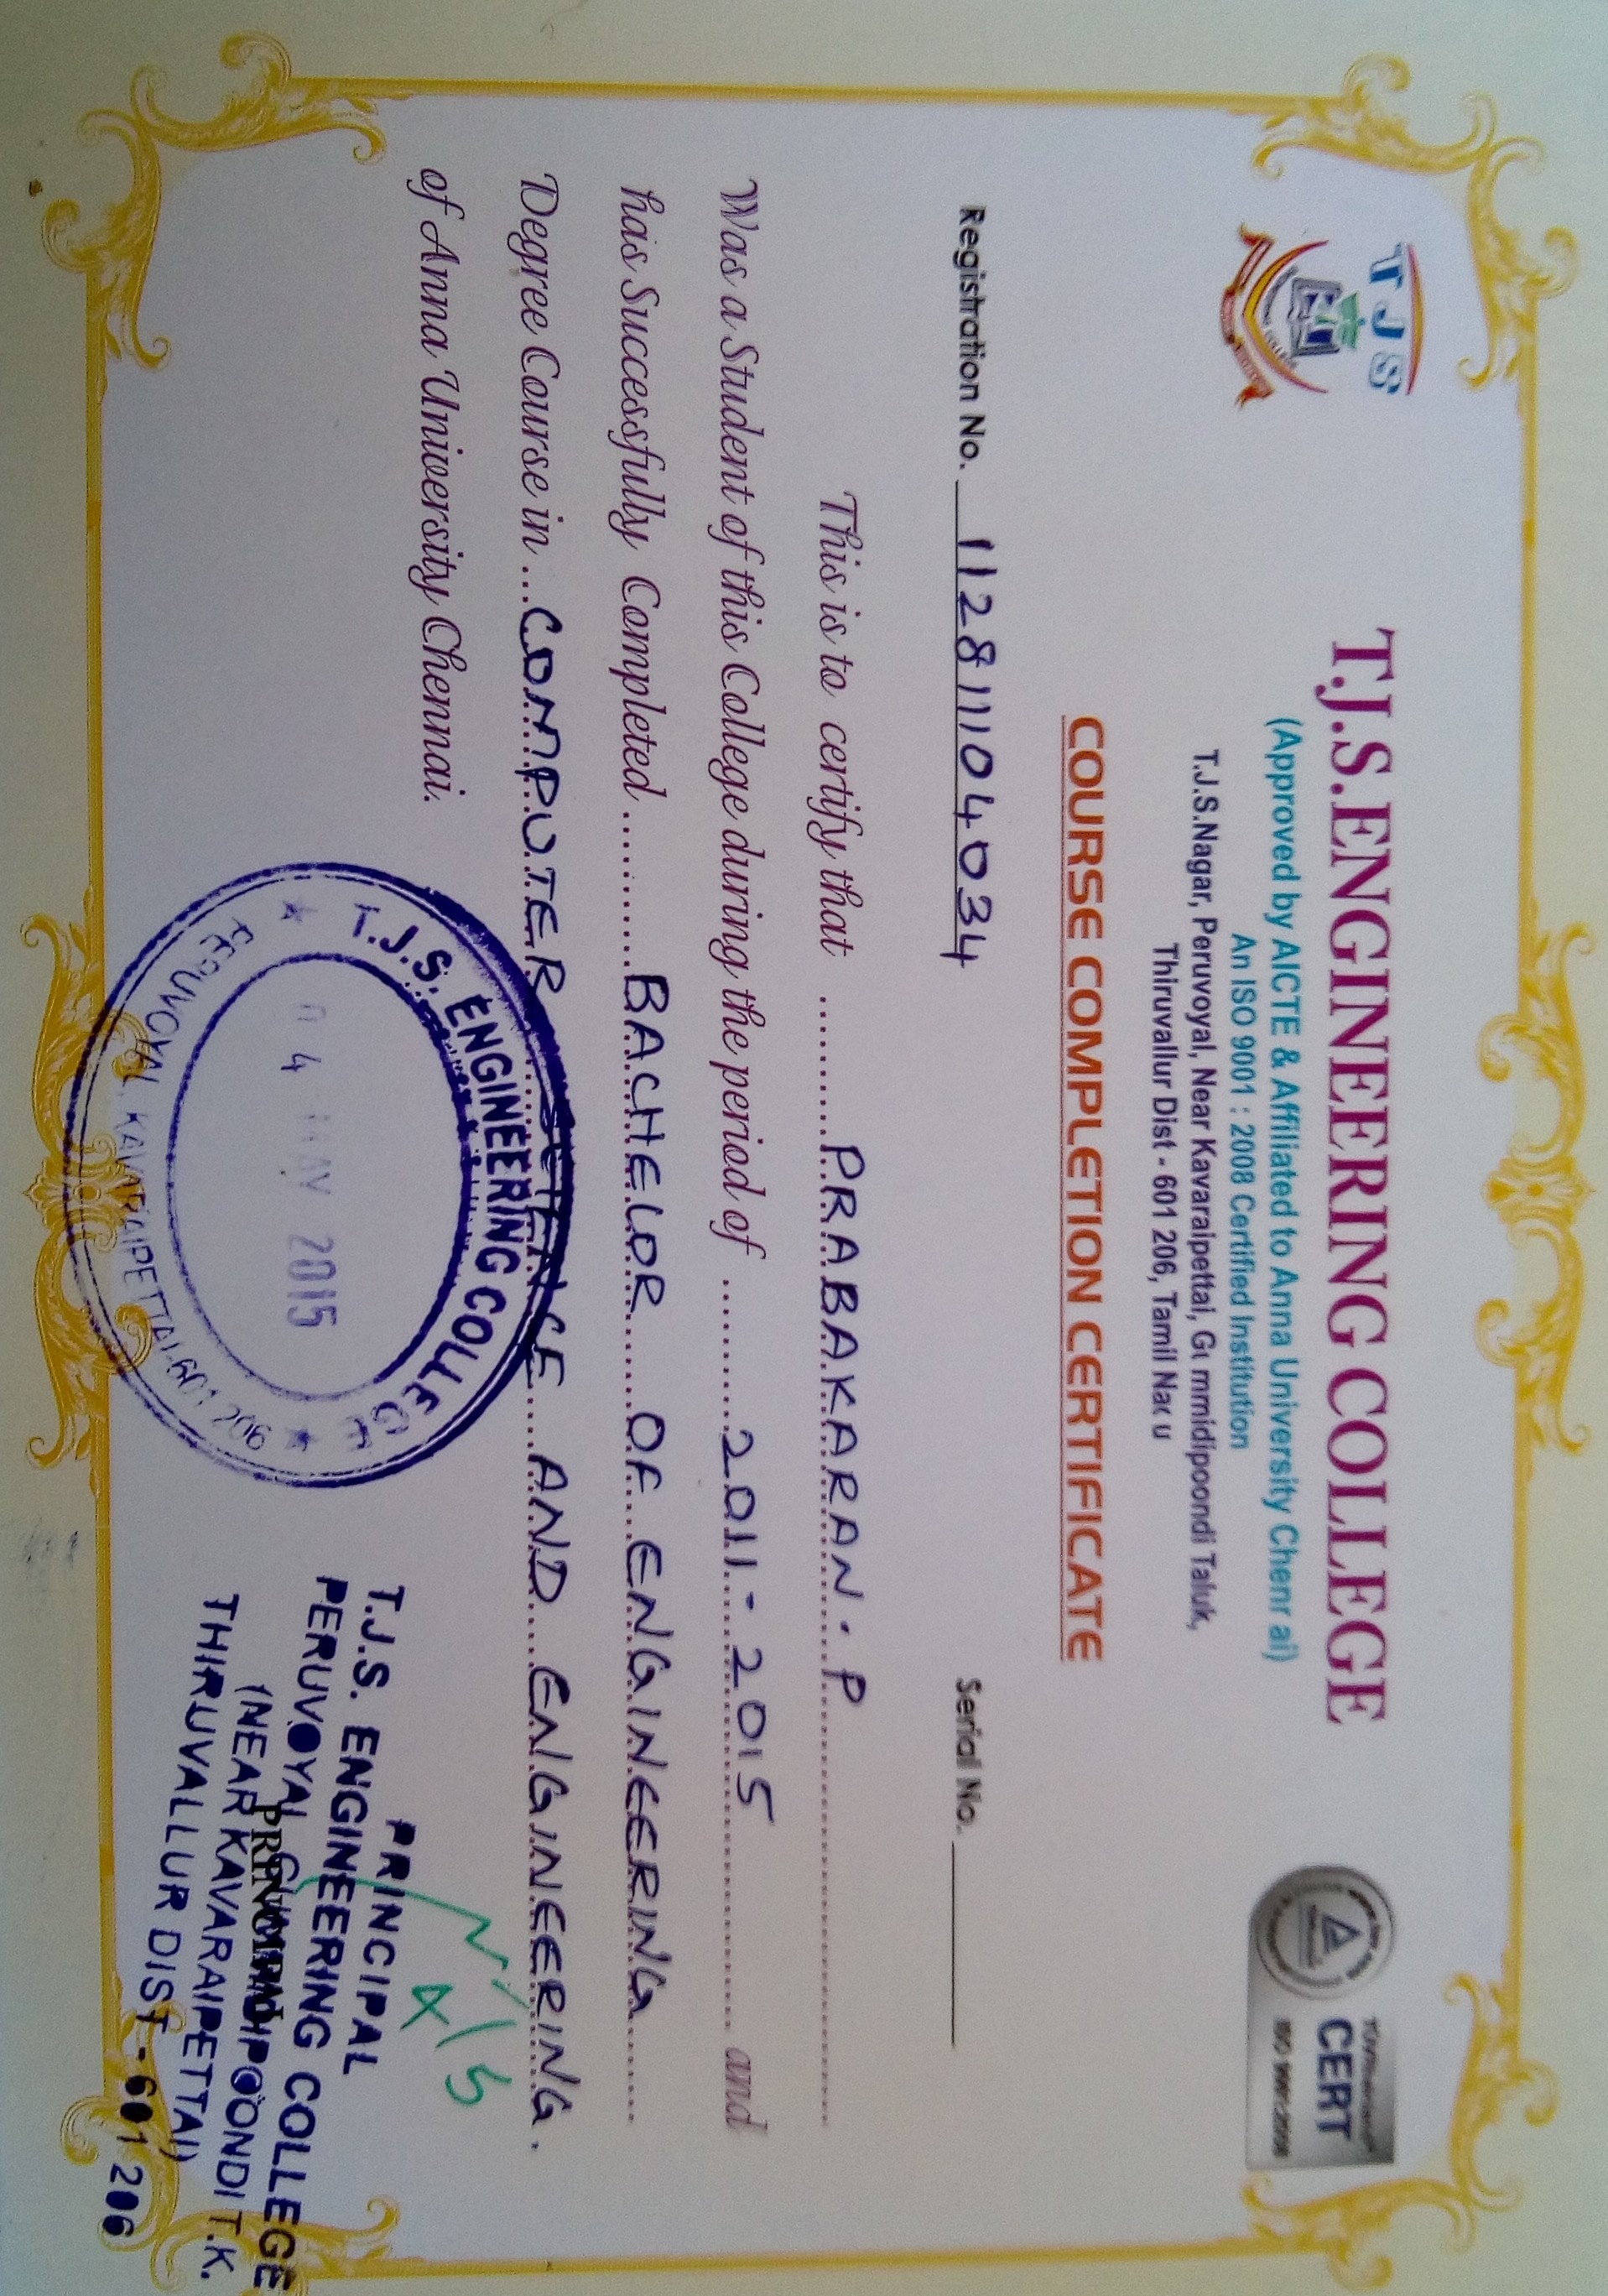 TJS
T.J.S.ENGINEERING COLLEGE
(Approved by AICTE & Affiliated to Anna University Chennai)
An ISO 9001 : 2008 Certified Institution
T.J.S.Nagar, Peruvoyal, Near Kavaraipettai, Gummidipoondi Taluk,
Thiruvallur Dist - 601 206, Tamil Nadu
CERT
ISO 9001:2008
COURSE COMPLETION CERTIFICATE
Registration No. 112811104034 Serial No.
This is to certify that PRABAKARAN. P
Was a Student of this College during the period of 2011 - 2015 and
has Successfully Completed BACHELOR OF ENGINEERING
Degree Course in COMPUTER SCIENCE AND ENGINEERING.
of Anna University Chennai.
T.J.S. ENGINEERING COLLEGE
04 MAY 2015
PERUVOYAL, KAVARAIPETTAI-601 206
4/5
PRINCIPAL
T.J.S. ENGINEERING COLLEGE
PERUVOYAL GUMMIDIPOONDI T.K.
(NEAR KAVARAIPETTAI)
THIRUVALLUR DIST - 601 206
PRINCIPAL